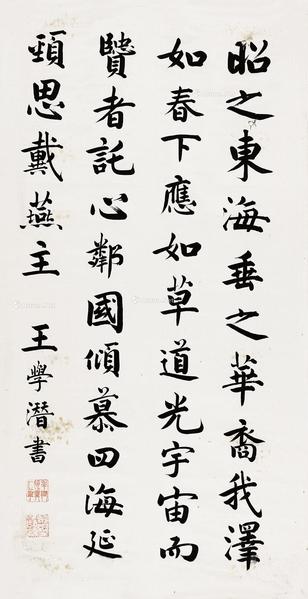 昭之東海垂之華裔我澤
如春下應如草道光宇宙而
賢者託心鄰國傾慕四海延
頸思戴燕主
王學潛書